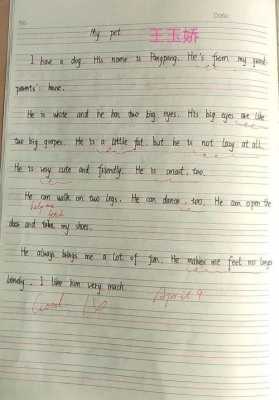 No.
Date.
My pet 王玉娇
I have a dog. His name is Pangpang. He's from my grand-
parents' home.
He is white and he has two big eyes. His big eyes are like
two big grapes. He is a little fat. but he is not lazy at all.
He is very cute and friendly. He is smart, too.
He can walk on two legs. He can dance, too. He can open the
help me
fetch
door and take my shoes.
He always brings me a lot of fun. He makes me feel no longer
lonely. I like him very much.
Good
April 9